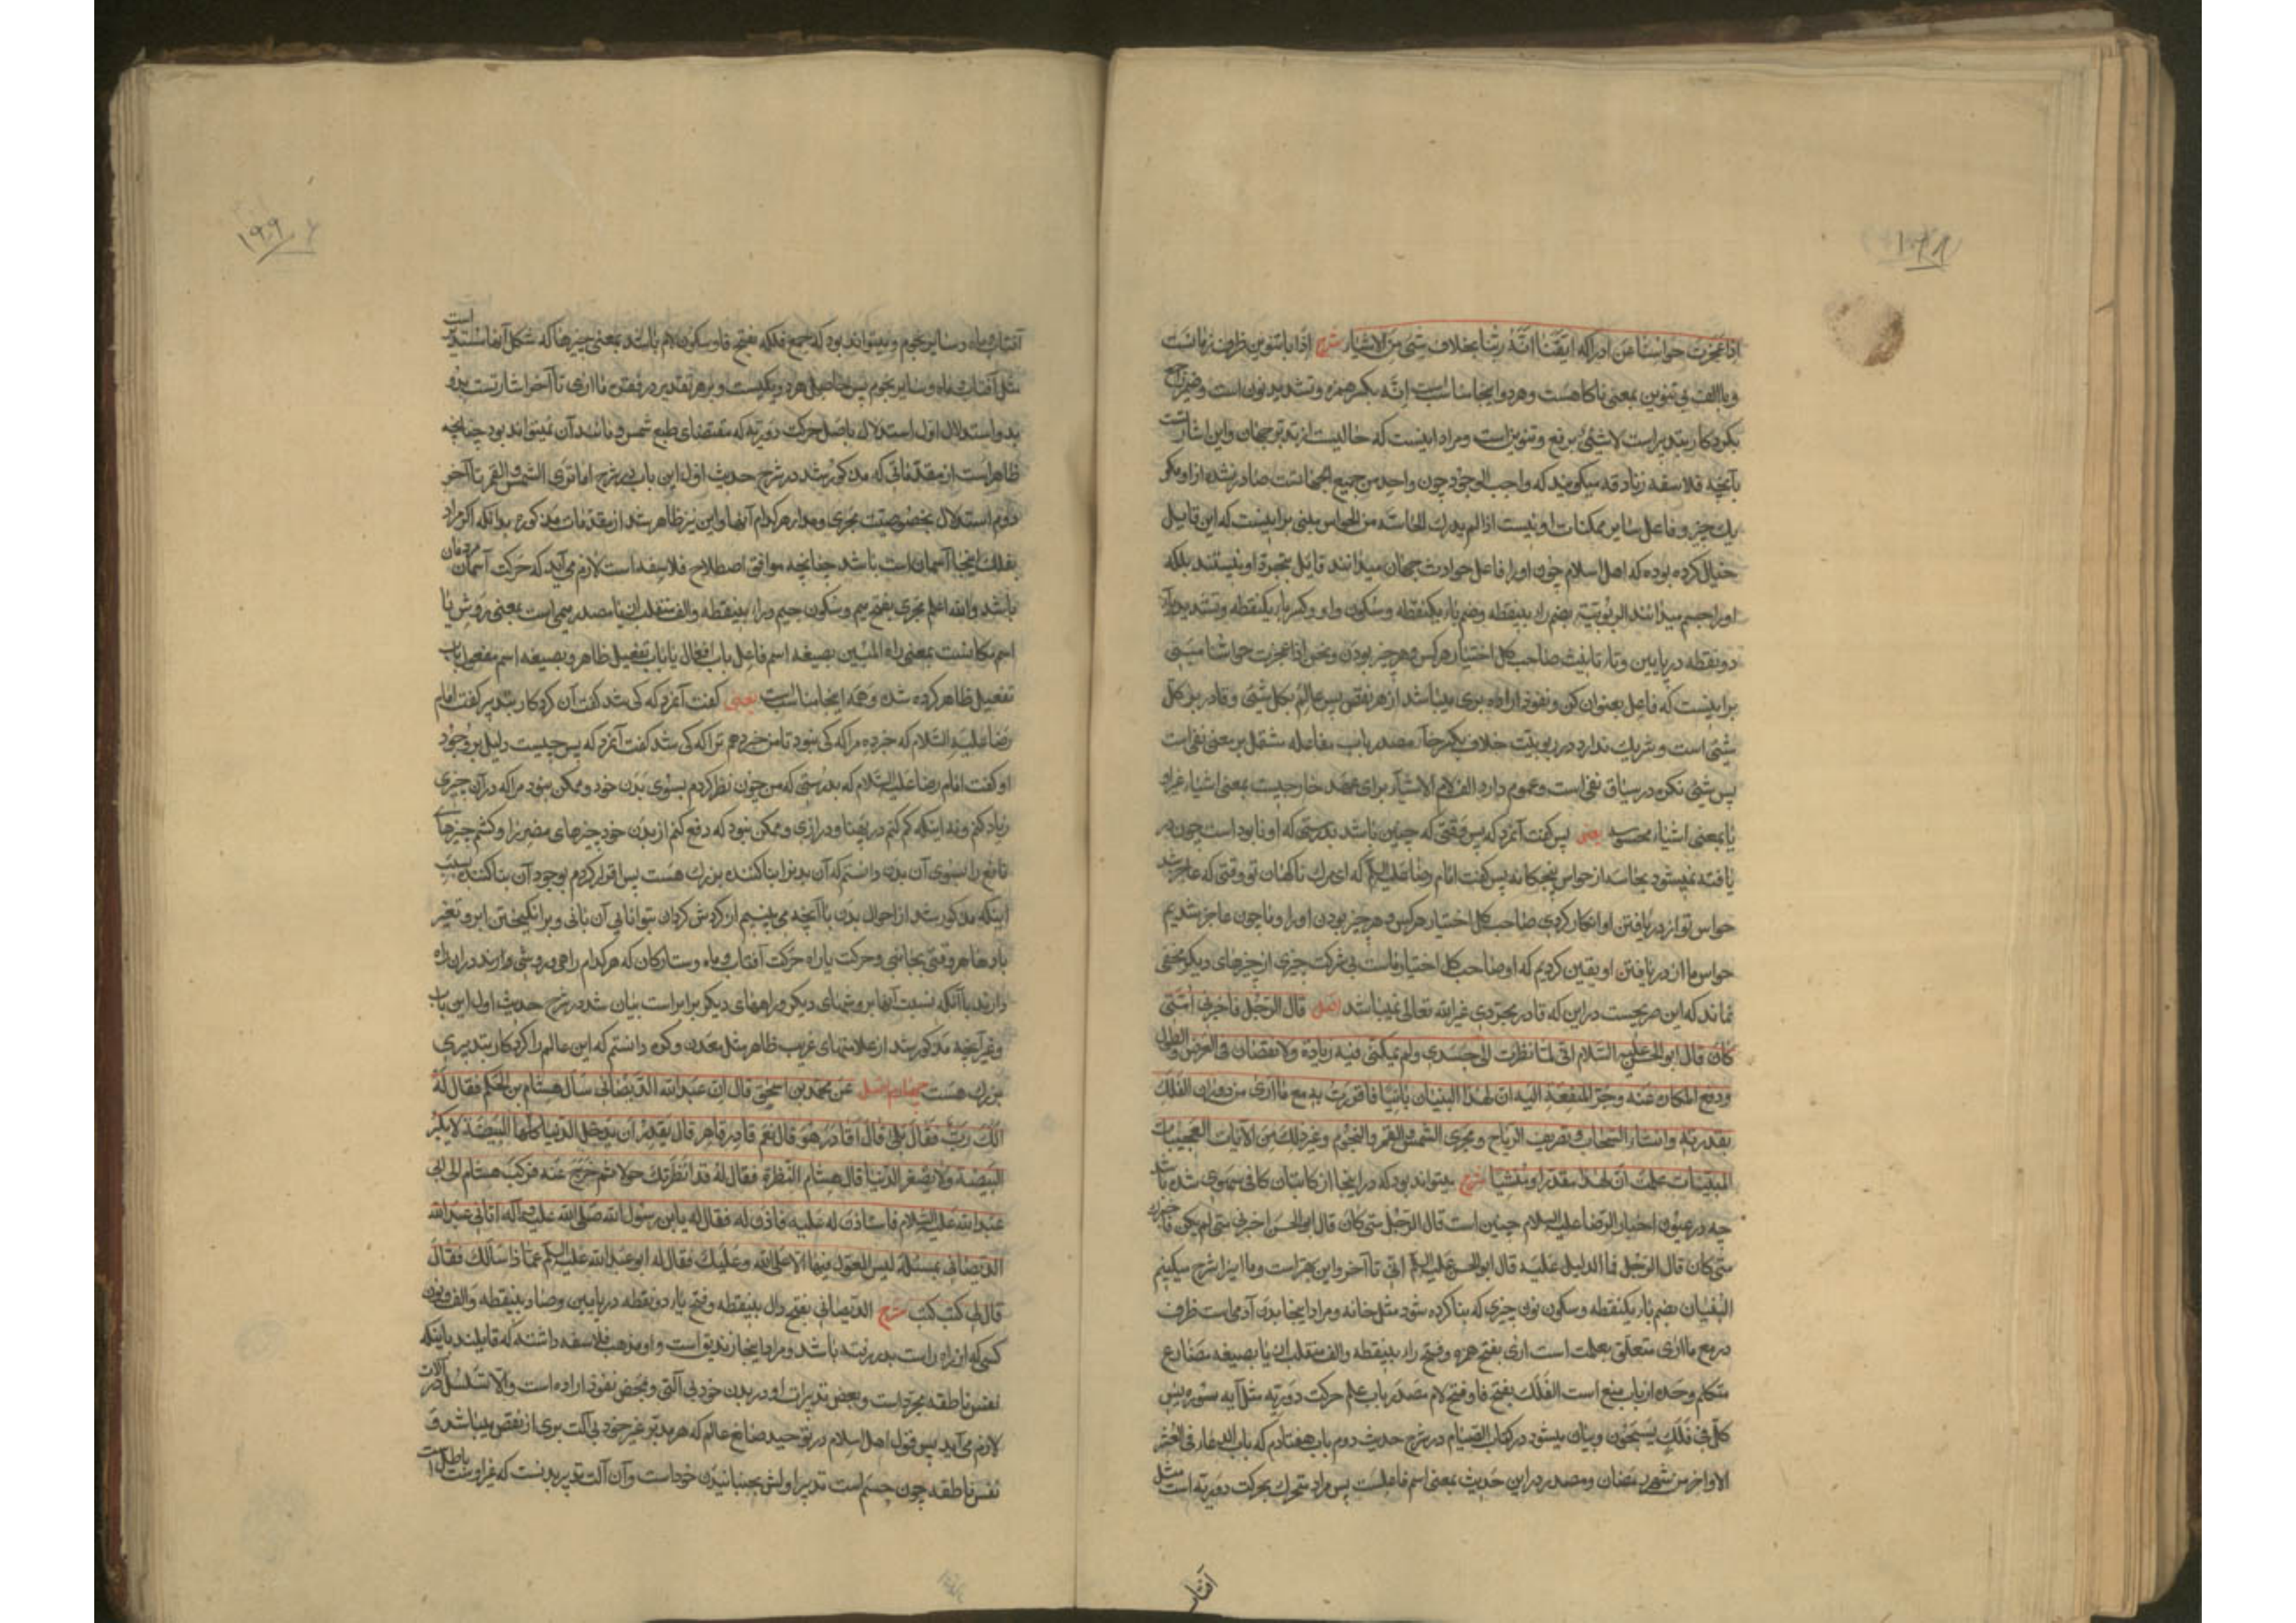 اذا عجزت حواسنا عن ادراكه ايقنا انّه ربّنا بخلاف شئ من الاشياء شرح اذا با تنوين ظرف زمانست
و با الف بی تنوين بمعنی ناكاهست و هر دو اينجا مناسب است انّه بكسر همزه و تشديد نون است و ضمير راجع
بكردكار بتدبير است لاشئ برفع و تنوين است و مراد اينست كه خاليست از تدبير جهان و اين اشارتست
بآنچه فلاسفه زنادقه ميكويند كه واجب الوجود چون واحد من جميع الجهاتست صادر نشده از او مكر
يك چيز و فاعل ساير ممكنات او نيست اذا لم يدرك بحاسّة من الحواس مبنی بر اينست كه اين قايل
خيال كرده بوده كه اهل اسلام چون او را فاعل حوادث جهان ميدانند قايل بتجرد او نيستند بلكه
او را جسم ميدانند الربوبية بضم راء بينقطه و ضم باء يكنقطه و سكون واو و كسر باء يكنقطه و تشديد ياء
دو نقطه در پايين و تاء تانيث صاحب كل اختيار هر كس و هر چيز بودن و نحن اذا عجزت حواسنا مبنی
بر اينست كه فاعل بعنوان كن و نفوذ اراده بری ميباشد از هر نقص پس عالم بكل شئ و قادر بر كل
شئ است و شريك ندارد در ربوبيت خلاف بكسر خاء مصدر باب مفاعله مشتمل بر معنی نفی است
پس شئ نكره در سياق نفی است و عموم دارد الف لام الاشياء برای عهد خارجيست بمعنی اشياء غراد
يا بمعنی اشياء محسوسه يعنی پس كفت آنمرد كه پس وقتی كه چنين باشد بدرستی كه او نابود است چون در
يافته نميشود بحاسه از حواس پنجكانه پس كفت امام رضا عليه السلام كه ای مرك ناكهان تو وقتی كه عاجز شد
حواس تو از دريافتن او انكار كردی صاحب كل اختيار هر كس و هر چيز بودن او را و ما چون عاجز شديم
حواس ما از دريافتن او يقين كرديم كه او صاحب كل اختيار ماست بی شركت چيزی از چيزهای ديكر مخفی
نماند كه اين صريحست در اين كه قادر مجردی غير الله تعالی نميباشد اصل قال الرجل فاخبرنی متی
كان قال ابو الحسن عليه السلام انی لما نظرت الی جسدی و لم يمكنی فيه زيادة و لا نقصان فی العرض و الطول
و دفع المكاره عنه و جرّ المنفعة اليه ان لهذا البنيان بانيا فاقررت به مع ما اری من دوران الفلك
بقدرته و انشاء السحاب و تصريف الرياح و مجری الشمس و القمر و النجوم و غير ذلك من الآيات العجيبات
المبينات علمت ان لهذا مقدرا و منشئا شرح ميتواند بود كه در اينجا از كاتبان كافی سهوی شده باشد
چه در عيون اخبار الرضا عليه السلام چنين است قال الرجل متی كان قال ابو الحسن اخبرنی متی لم يكن فاخبرك
متی كان قال الرجل فما الدليل عليه قال ابو الحسن عليه السلام انی تا آخر و اين بهتر است و ما اينرا شرح ميكنيم
البنيان بضم باء يكنقطه و سكون نون چيزی كه بنا كرده شود مثل خانه و مراد اينجا بدن آدمی است ظرف
در مع ما اری متعلق بعلمت است اری بفتح همزه و فتح راء بينقطه و الف منقلب از يا بصيغه مضارع
متكلم وحده از باب منع است الفلك بفتح فا و فتح لام مصدر باب علم حركت دوريه مثل آيه سوره يس
كل فی فلك يسبحون و بيان ميشود در كتاب الصيام در شرح حديث دوم باب هفتادم كه باب الدعاء فی العشر
الاواخر من شهر رمضان و مصدر در اين حديث بمعنی اسم فاعلست پس مراد متحرك بحركت دوريه است مثل
آفتاب
آفتاب و ماه و ساير نجوم و ميتواند بود كه جمع فلكه بفتح فا و سكون لام باشد بمعنی چيزها كه شكل آنها مستدير است
مثل آفتاب و ماه و ساير نجوم پس حاصل هر دو يكيست و بر هر تقدير در كفتن ما اری تا آخر اشارتست بدو
بدو استدلال اول استدلال باصل حركت دوريه كه مقتضای طبع شمس و مانند آن نميتواند بود چنانچه
ظاهر است از مقدماتی كه مذكور شد در شرح حديث اول اين باب در شرح اما تری الشمس و القمر تا آخر
دوم استدلال بخصوصيت مجری و مدار هر كدام آنها و اين نيز ظاهر شد از مقدمات مذكوره بدانكه اكر مراد
بفلك اينجا آسمان است باشد چنانچه موافق اصطلاح فلاسفه است لازم می آيد كه حركت آسمان
باشد و الله اعلم مجری بفتح ميم و سكون جيم و راء بينقطه و الف منقلب از يا مصدر ميمی است بمعنی روش يا
اسم مكانست بمعنی راه المبين بصيغه اسم فاعل باب افعال يا باب تفعيل ظاهر و بصيغه اسم مفعول باب
تفعيل ظاهر كرده شده و همه اينجا مناسب است يعنی كفت آنمرد كه كی شد كفت آن كردكار بتدبير كفت امام
رضا عليه السلام كه خبر ده مرا كه كی نبود تا من خبر دهم ترا كه كی شد كفت آنمرد كه پس چيست دليل بر وجود
او كفت امام رضا عليه السلام كه بدرستی كه من چون نظر كردم بسوی بدن خود و ممكن نبود مرا كه در آن چيزی
زياد كنم و نه اينكه كم كنم در پهنا و درازی و ممكن نبود كه دفع كنم از بدن خود چيزهای مضر را و كشم چيزهای
نافع را بسوی آن بدن دانستم كه آن بدن را بناكننده بزرك هست پس اقرار كردم بوجود آن بناكننده بسبب
اينكه مذكور شد از احوال بدن با آنچه می بينيم از كردش كردان بتوانايی آن بانی و برانكيختن ابر و تغير
بادها هر وقتی بجانبی و حركت يا راه حركت آفتاب و ماه و ستاركان كه هر كدام راهی و روشی دارند در آن راه
دارند با آنكه نسبت آنها بروشهای ديكر و راههای ديكر برابر است بيان شد در شرح حديث اول اين باب
و غير آنچه مذكور شد از علامتهای غريب ظاهر مثل معدن و كوه دانستم كه اين عالم را كردكار بتدبيری
بزرك هست چهارم اصل عن محمد بن اسحق قال ان عبد الله الديصانی سأل هشام بن الحكم فقال له
الك رب فقال بلی قال اقادر هو قال نعم قادر قاهر قال يقدر ان يدخل الدنيا كلها البيضة لا يكبر
البيضة و لا يصغر الدنيا قال هشام النظرة فقال له قد انظرتك حولا ثم خرج عنه فركب هشام الی ابی
عبد الله عليه السلام فاستاذن له عليه فاذن له فقال له يا بن رسول الله صلی الله عليه و آله اتانی عبد الله
الديصانی بمسئلة ليس المعول فيها الا علی الله و عليك فقال له ابو عبد الله عليه السلام عما ذا سألك فقال
قال لی كيت كيت شرح الديصانی بفتح دال بينقطه و فتح ياء دو نقطه در پايين و صاد بينقطه و الف و نون
كسی كه از راه راست بدر رفته باشد و مراد اينجا زنديق است و او مذهب فلاسفه داشته كه قايلند باينكه
نفس ناطقه مجرد است و بعض تدبيرات او در بدن خود بی آلتی و بمحض نفوذ اراده است و الا تسلسل در آلات
لازم می آيد پس قول اهل اسلام در توحيد صانع عالم كه هر مدبر غير خود بی آلت بری از نقص ميباشد و
نفس ناطقه چون جسم است تدبير اولش بجنبانيدن خود است و آن آلت تدبير بدنست كه غير اوست باطل است